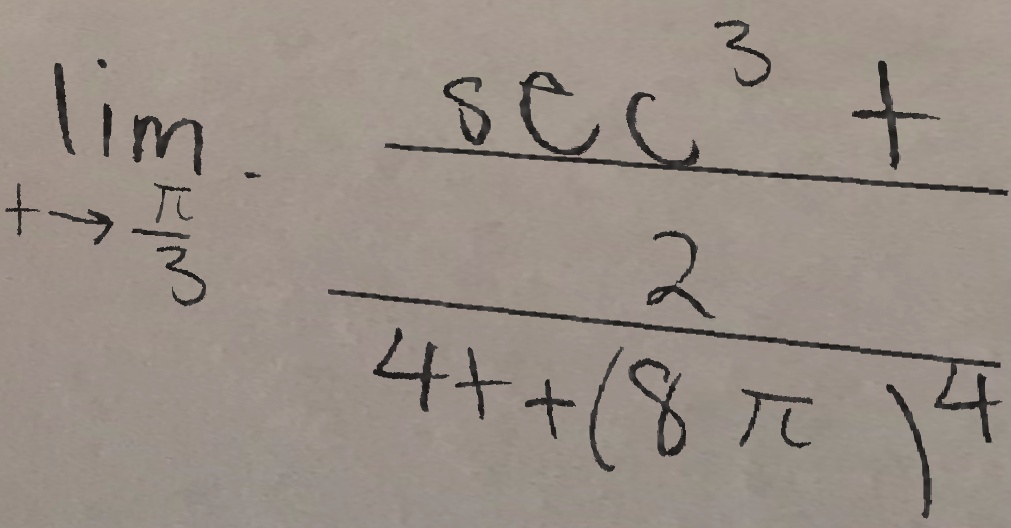 \lim_{t \to \frac{\pi}{3}} - \frac{\frac{\sec^3 t}{2}}{4t + (8\pi)^4}